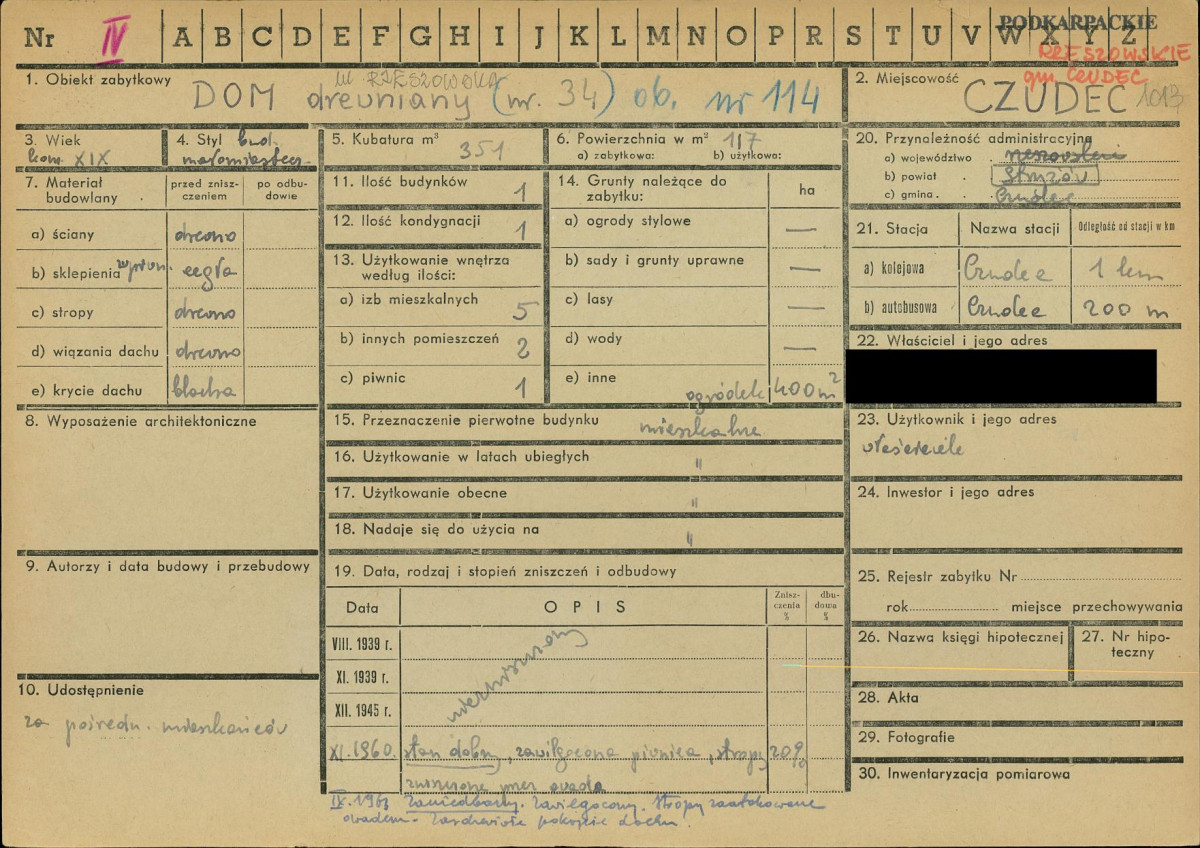 Nr IV A B C D E F G H I J K L M N O P R S T U V W X Y Z
PODKARPACKIE
RZESZOWSKIE
gm. CZUDEC
1. Obiekt zabytkowy
ul. RZESZOWSKA
DOM drewniany (nr. 34) ob. nr 114
2. Miejscowość
CZUDEC 1017
3. Wiek
kon. XIX
4. Styl bud.
małomiastecz.
5. Kubatura m³
351
6. Powierzchnia w m² 117
a) zabytkowa: b) użytkowo:
7. Materiał budowlany
przed znisz-
czeniem
po odbu-
dowie
a) ściany drewno
b) sklepienia cegła
c) stropy drewno
d) wiązania dachu drewno
e) krycie dachu blacha
8. Wyposażenie architektoniczne
9. Autorzy i data budowy i przebudowy
10. Udostępnienie
za pośredn. mieszkańców
11. Ilość budynków 1
12. Ilość kondygnacji 1
13. Użytkowanie wnętrza
według ilości:
a) izb mieszkalnych 5
b) innych pomieszczeń 2
c) piwnic 1
14. Grunty należące do
zabytku:
ha
a) ogrody stylowe —
b) sady i grunty uprawne —
c) lasy —
d) wody —
e) inne ogródek 400 m²
15. Przeznaczenie pierwotne budynku mieszkalne
16. Użytkowanie w latach ubiegłych "
17. Użytkowanie obecne "
18. Nadaje się do użycia na "
19. Data, rodzaj i stopień zniszczeń i odbudowy
Data OPIS
Znisz-
czenia
%
dbu-
dowa
%
VIII. 1939 r.
XI. 1939 r.
XII. 1945 r.
XI. 1960 stan dobry, zawilgocona piwnica, stropy 20%
zniszczone przez owada
IX. 1963 Zaniedbany. Zawilgocony. Stropy zaatakowane
owadem. Zardzewiałe pokrycie dachu.
20. Przynależność administracyjna
a) województwo rzeszowskie
b) powiat Strzyżów
c) gmina Czudec
21. Stacja Nazwa stacji Odległość od stacji w km
a) kolejowa Czudec 1 km
b) autobusowa Czudec 200 m
22. Właściciel i jego adres
23. Użytkownik i jego adres
właściciele
24. Inwestor i jego adres
25. Rejestr zabytku Nr
rok miejsce przechowywania
26. Nazwa księgi hipotecznej
27. Nr hipo-
teczny
28. Akta
29. Fotografie
30. Inwentaryzacja pomiarowa